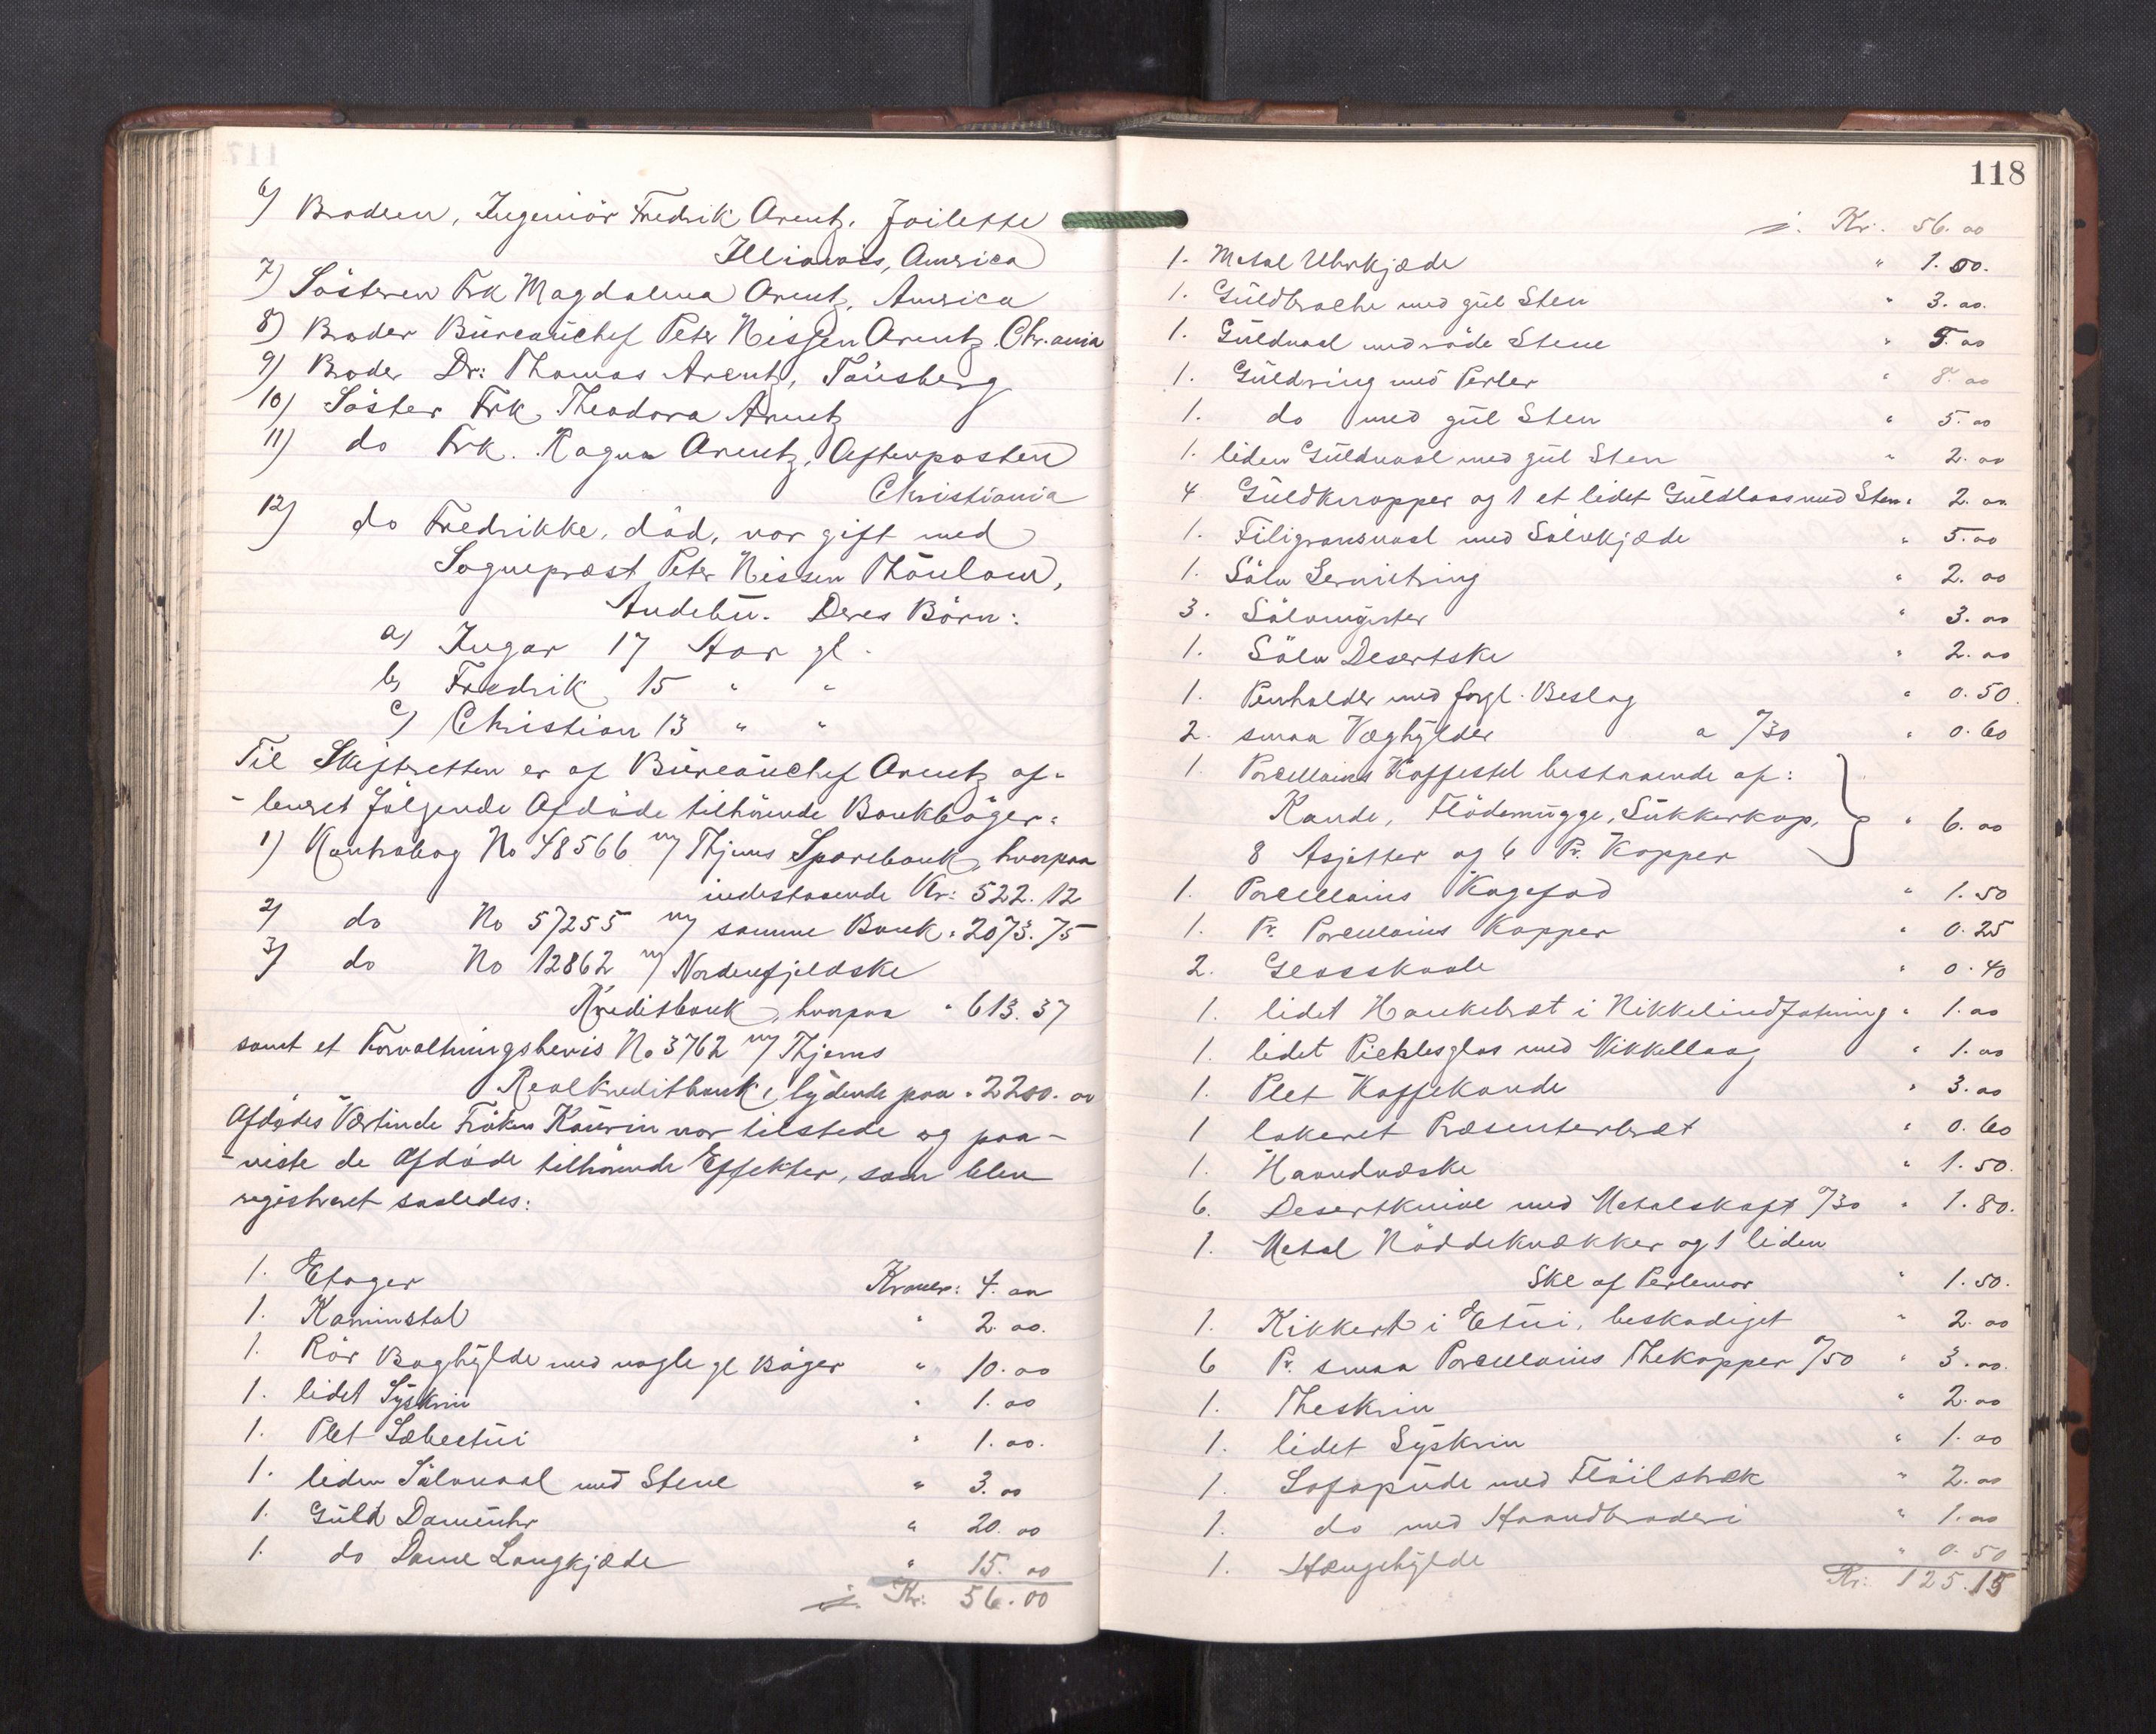 6) Broderen, Ingeniör Fredrik Arentz, Joilette
Illianois, America
7) Sösteren Frk Magdalena Arentz, America
8) Broder Bureauchef Peter Nissen Arentz. Chr.ania
9) Broder Dr: Thomas Arentz, Tönsberg
10) Söster Frk. Theodora Arentz
11) do Frk. Ragna Arentz, Aftenposten
Christiania
12) do Fredrikke, död, var gift med
Sogneprest Peter Nissen Thönlow,
Andebu. Deres Börn:
a) Ingar 17 Aar gl.
b) Fredrik 15 " "
c) Christian 13 " "
Til Skifteretten er af Bureauchef Arentz af-
-leveret fölgende Afdöde tilhörende Bankböger:
1) Kontrabog No 48566 m/ Thjems Sparebank, hvorpaa
indestaaende Kr: 522.12
2) do No 57255 m/ samme Bank " 2073.75
3) do No 12862 m/ Nordenfjeldske
Kreditbank, hvorpaa " 613.37
samt et Forvaltningsbevis No 3762 m/ Thjems
Realkreditbank, lydende paa " 2200.00
Afdödes Værtinde Fröken Kaurin var tilstede og paa-
-viste de Afdöde tilhörende Effekter, som blev
registreret saaledes:
1. Etager Kroner: 4.00
1. Kaminstol " 2.00.
1. Rör Boghylde med nogle gl Böger " 10.00
1. lidet Syskrin " 1.00
1. Plet Sæbeetui " 1.00.
1. liden Sölvnaal med Stene " 3.00
1. Guld Dameuhr " 20.00
1. do Dame Langkjæde " 15.00
Kr: 56.00
118
Kr. 56.00
1. Metal Uhrkjæde " 1.50.
1. Guldbroche med gul Sten " 3.00.
1. Guldnaal med röde Stene " 5.00
1. Guldring med Perler " 8.00
1. do med gul Sten " 5.00
1. liden Guldnaal med gul Sten " 2.00
4 Guldknopper og 1 et lidet Guldlaas med Sten " 2.00
1. Filigransnaal med Sölvkjæde " 5.00
1. Sölv Serviettring " 2.00
3. Sölvmynter " 3.00
1. Sölv Desertske " 2.00
1. Penholder med forgl. Beslag " 0.50
2. smaa Væghylder a /30 " 0.60
1. Porcellains Kaffestel bestaaende af:
Kande, Flödemugge, Sukkerkop, " 6.00
8 Asjetter og 6 Pr. Kopper
1. Porcellains Kagefad " 1.50
1. Pr. Porcellains Kopper " 0.25
2. Glasskaale " 0.40
1. lidet Hankebræt i Nikkelindfatning " 1.00
1. lidet Picklesglas med Nikkellaag " 1.00
1. Plet Kaffekande " 3.00
1 lakeret Præsenterbræt " 0.60
1. Haandvæske " 1.50.
6. Desertknive med Metalskaft a/30 " 1.80.
1. Metal Nöddeknækker og 1 liden
Ske af Perlemor " 1.50.
1. Kikkert i Etui, beskadiget " 2.00
6 Pr. smaa Porcellains Thekopper a/50 " 3.00.
1. Theskrin " 2.00
1. lidet Syskrin " 1.00
1. Sofapude med Flöilstræk " 2.00
1. do med Haandbroderi " 1.00
1. Hængehylde " 0.50
Kr: 125.15